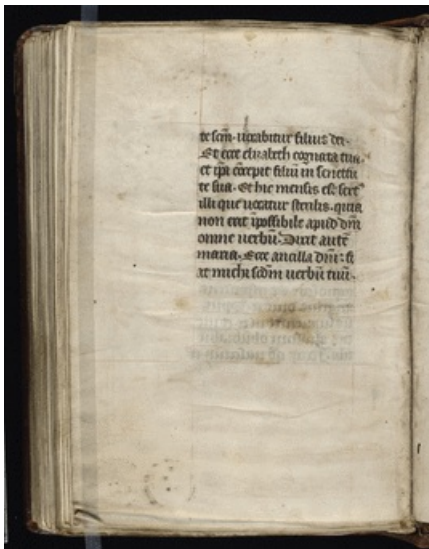 te scm. uocabitur filius dei.
Et ecce elizabeth cognata tua
et ipa cōcepit filiū in senectu
te sua. Et hic mensis est sext
illi que uocatur sterilis. quia
non erit īpossibile apud dm
omne uerbū. Dixit autē
maria. Ecce ancilla dni: fi
at michi scdm uerbū tuū.